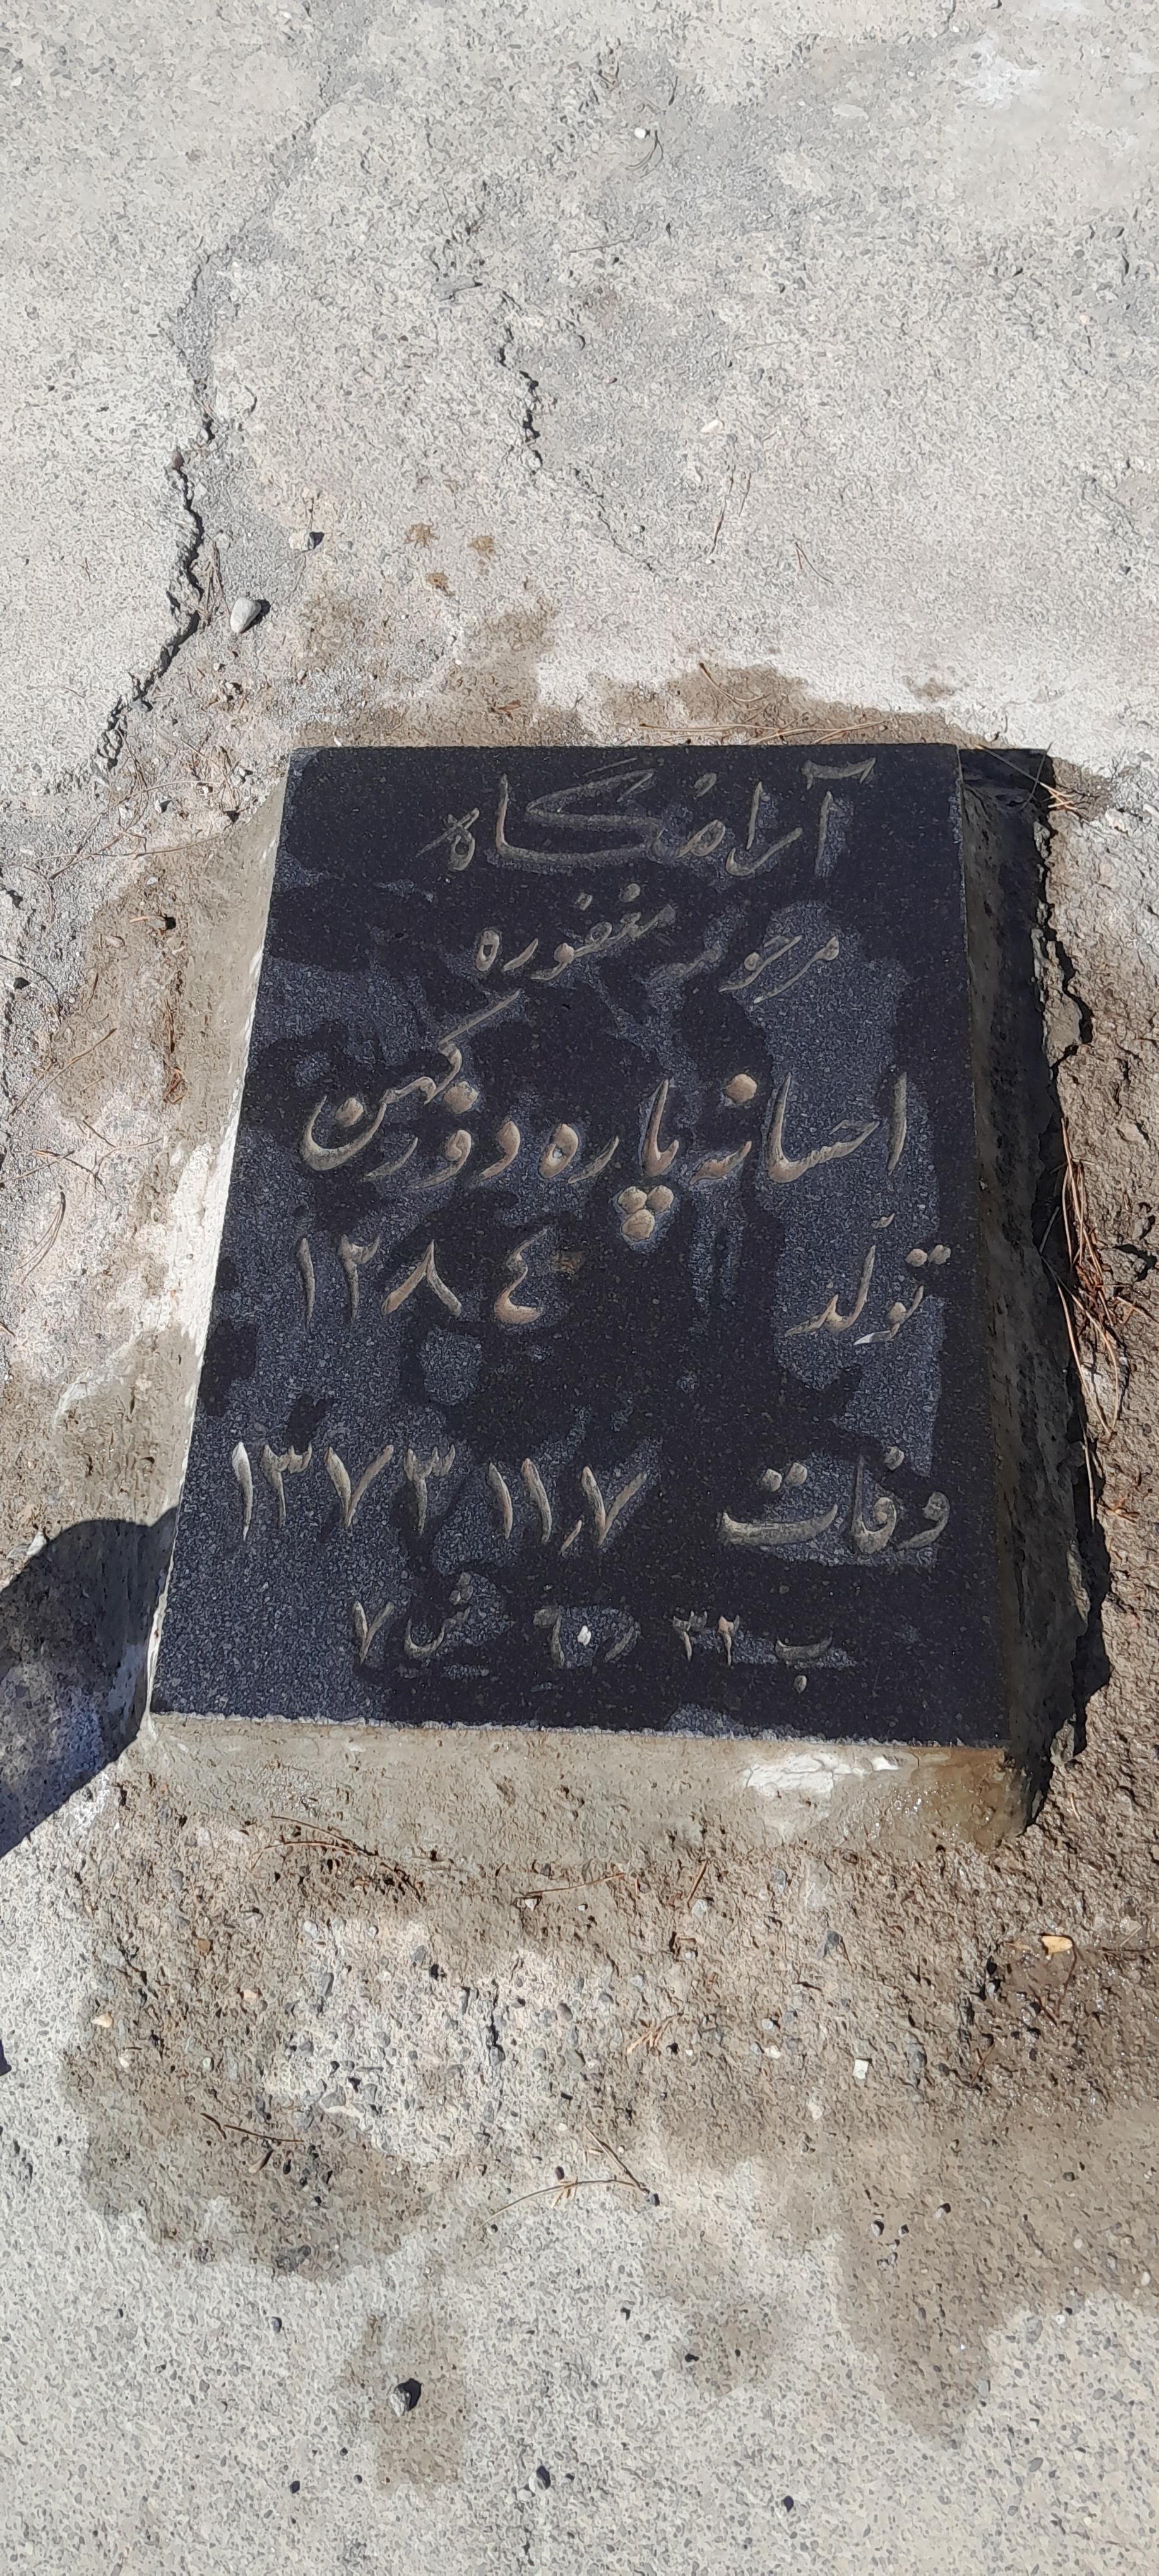 آرامگاه
مرحومه مغفوره
احسانه پاره دوز کهن
تولد ۱۲۸٤
وفات ۱۱٫۷ ۱۳۷۳
ب ۳۲ ر ٦ ش ۷